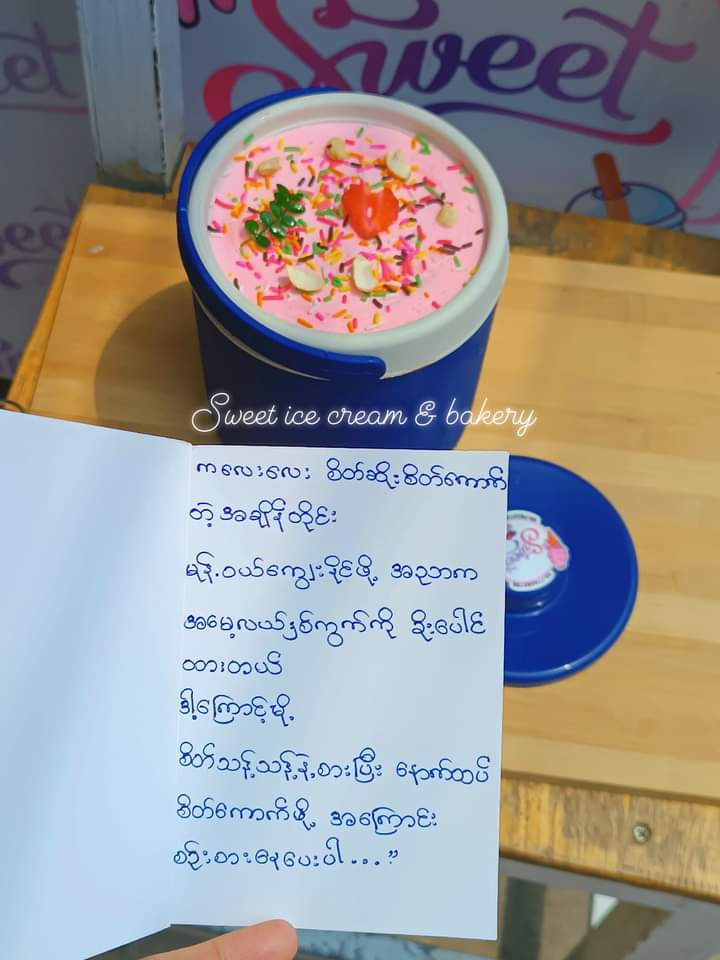 Sweet
Sweet ice cream & bakery
ကလေးလေး စိတ်ဆိုးစိတ်ကောက်
တဲ့အချိန်တိုင်း
မုန့်ဝယ်ကျွေးနိုင်ဖို့ အဥဘက
အမေ့လယ်နှစ်ကွက်ကို ခိုးပေါင်
ထားတယ်
ဒါ့ကြောင့်မို့
စိတ်သန့်သန့်နဲ့စားပြီး နောက်ထပ်
စိတ်ကောက်ဖို့ အကြောင်း
စဉ်းစားနေပေးပါ...”